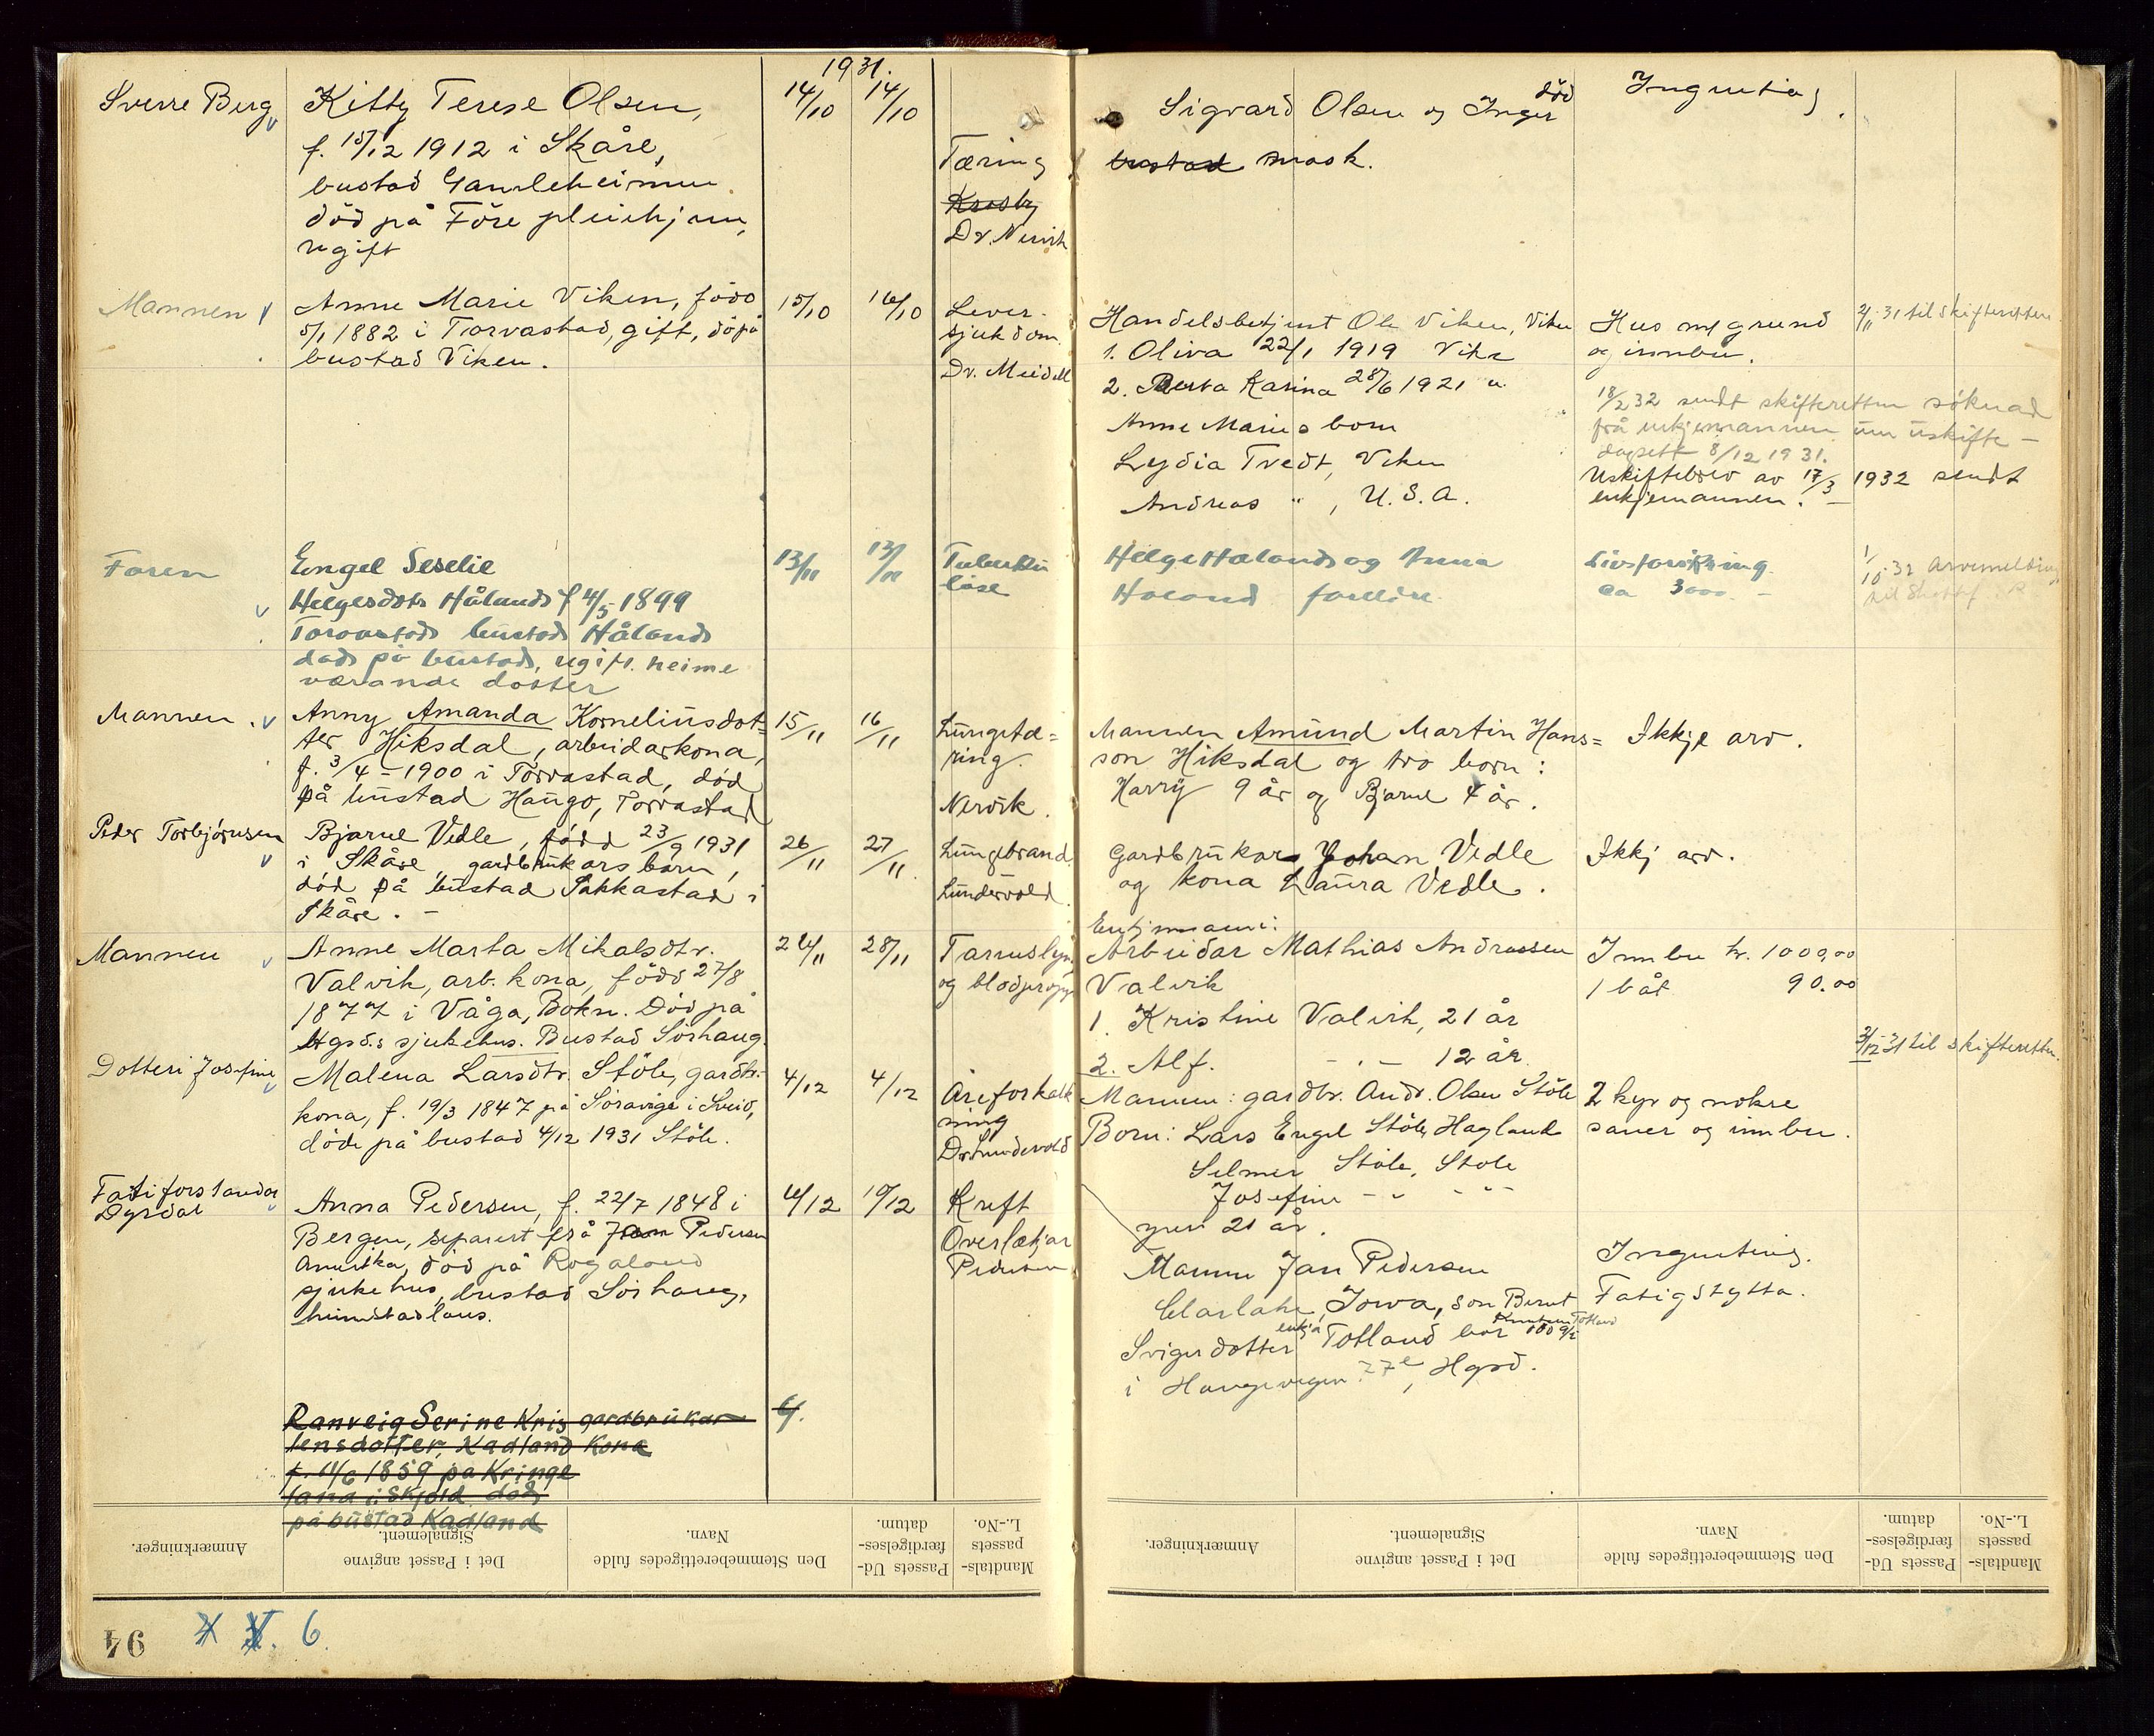 1931.
Sverre Berg
Kitty Terese Olsen,
f. 15/12 1912 i Skåre,
bustad Gamleheimen.
död på Före pleiehjem,
ugift
14/10 14/10
Tæring
Dr. Nervik
Sigvard Olsen og Inger död
bustad mask.
Ingenting
Mannen
Anne Marie Viken, född
5/1 1882 i Torvastad, gift, död på
bustad Viken.
15/10 16/10
Lever-
sjukdom.
Dr. Meidell
Handelsbetjent Ole Viken, Viken
1. Oliva 22/1 1919 Vike
2. Berta Karina 28/6 1921 "
Anne Maries born
Lydia Tvedt, Viken
Andreas " , U.S.A.
Hus m/ grund
og innbu.
18/2 32 sendt skifteretten söknad
frå enkjemannen um uskifte -
dagsett 8/12 1931.
Uskiftebrev av 17/3 1932 sendt
enkjemannen. -
2/11-31 til skifteretten
Faren
Engel Seselie
Helgesdotr Håland f 4/5 1899
Torvastad bustad Håland
död på bustad, ugift. heime
værande dotter
13/11 13/11
Tuberku
lose
Helge Haland og Anna
Haland foreldre
Livsforsikring
ca 3000. -
1/10-32 Arvemelding
Mannen.
Anny Amanda Korneliusdot=
ter Hiksdal, arbeidarkona,
f. 3/4 - 1900 i Torvastad, död
på bustad Haugo, Torvastad
15/11 16/11
Lungetæ=
ring.
Nervik.
Mannen Amund Martin Hans=
son Hiksdal og tvo born:
Harry 9 år og Bjarne 4 år.
Ikkje arv.
Peder Torbjörnsen
Bjarne Vedle, född 23/9 1931
i Skåre, gardbrukars barn,
död på bustad Sakkastad i
Skåre. -
26/11 27/11
Lungebrand.
Lundevold.
Gardbrukar Johan Vedle
og kona Laura Vedle.
Ikkj arv.
Mannen
Anne Marta Mikalsdtr.
Valvik, arb. kona, född 27/8
1877 i Våga, Bokn. Död på
Hgsds sjukehus. Bustad Sörhaug.
24/11 28/11
Tarmslyng
og blodpropp
Enkjemann:
Arbeidar Mathias Andreassen
Valvik
1. Kristine Valvik, 21 år
2. Alf. - " - 12 år
Innbu kr. 1000,00
1 båt 90.00
3/12-31 til skifteretten.
Dotteri Josefine
Malena Larsdtr. Stöle, gardbr.-
kona, f. 19/3 1847 på Söravige i Sveio,
döde på bustad 4/12 1931 Stöle.
4/12 4/12
Åreforkalk
ning
Dr. Lundevold
Mannen: gardbr. Andr. Olsen Stöle
Born: Lars Engel Stöle, Hagland
Selmer Stöle, Stöle
Josefine - " - " -
yver 21 år.
2 kyr og nokre
sauer og innbu.
Fatiforstandar
Dyrdal
Anna Pedersen, f. 22/7 1848 i
Bergen, separert frå Jan Pedersen
Amerika, död på Rogaland
sjukehus, bustad Sörhaug,
heimstadlaus.
4/12 10/12
Kreft
Overlækjar
Pedersen
Mannen Jan Pedersen
Clarlake, Iowa, son Bernt
Svigerdotter enkja Totland bor
i Haugevegen 77e, Hgsd.
Ingenting.
Fatigstytta.
Ranveig Serine Kris gardbrukar
tensdotter, Kadland Kona
f. 11/6 1859 på Kringe
lana i Skjold. död
på bustad Kadland
4.
Anmærkninger.
Det i Passet angivne
Signalement.
Den Stemmeberettigedes fulde
Navn.
Passets Ud-
færdigelses-
datum.
Mandtals-
passets
L.-No.
Anmærkninger.
Det i Passet angivne
Signalement.
Den Stemmeberettigedes fulde
Navn.
Passets Ud-
færdigelses-
datum.
Mandtals-
passets
L.-No.
94
6.